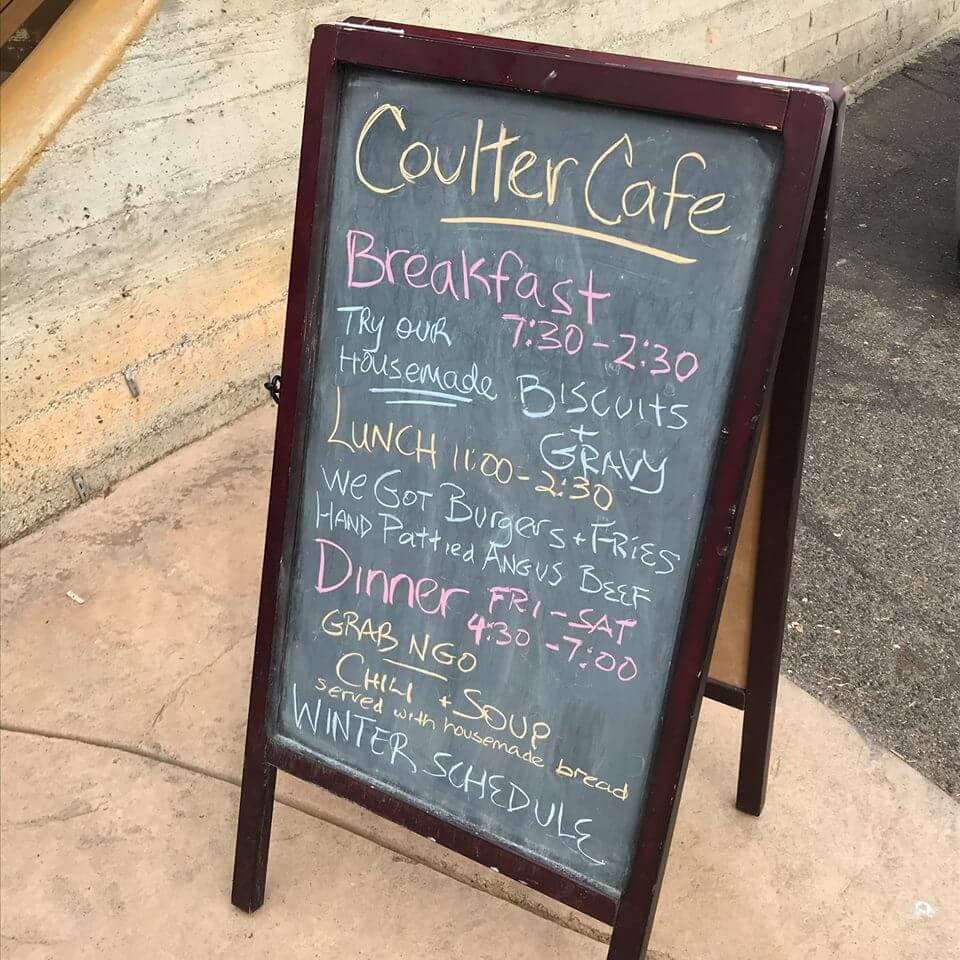 Coulter Cafe
Breakfast
7:30-2:30
TRY OUR
Housemade BISCUITS
+
GRAVY
LUNCH 11:00-2:30
We GoT Burgers + FRIES
HAND Pattied ANGUS BEEF
Dinner FRI-SAT
4:30-7:00
GRAB NGO
CHILI + SOUP
served with housemade bread
WINTER SCHEDULE